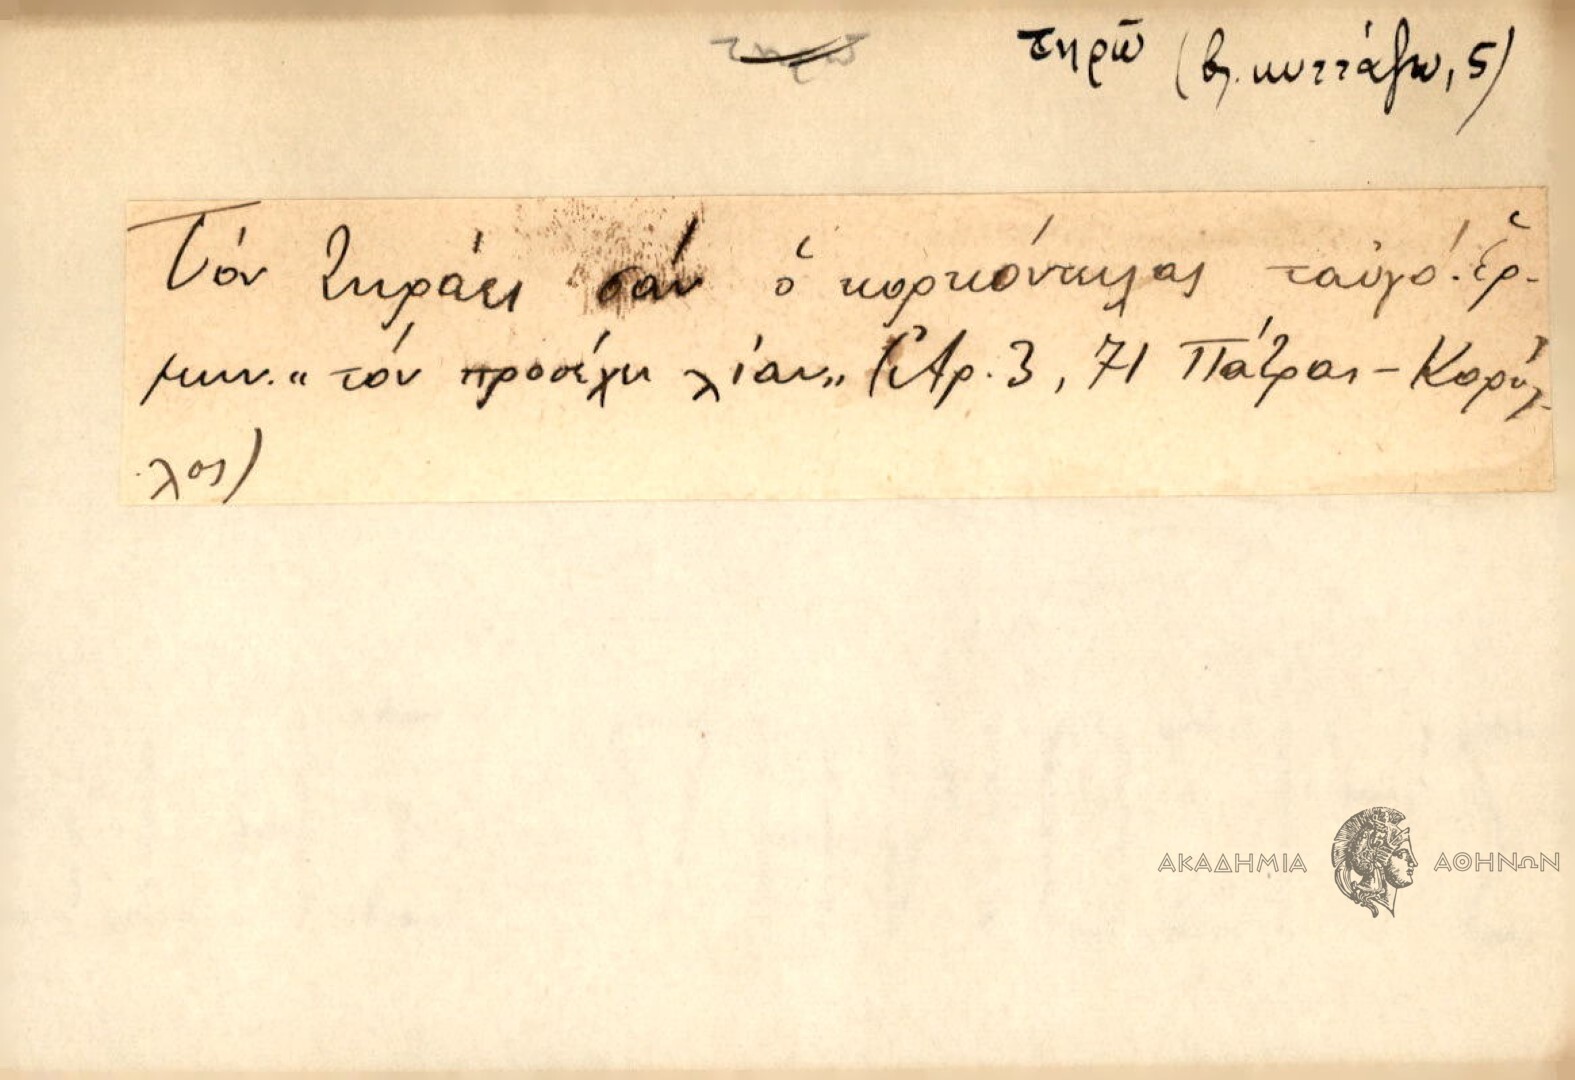 τηρῶ
τηρῶ (βλ. κυττάζω, 5)
Τόν τηράει σάν ὁ κορκόντηλας ταὐγό. Ἑρ-
μην. „ τόν προσέχει λίαν „ (Ἀρ. 3, 71 Πάτραι - Κορύλ-
λος)
ΑΚΑΔΗΜΙΑ ΑΘΗΝΩΝ